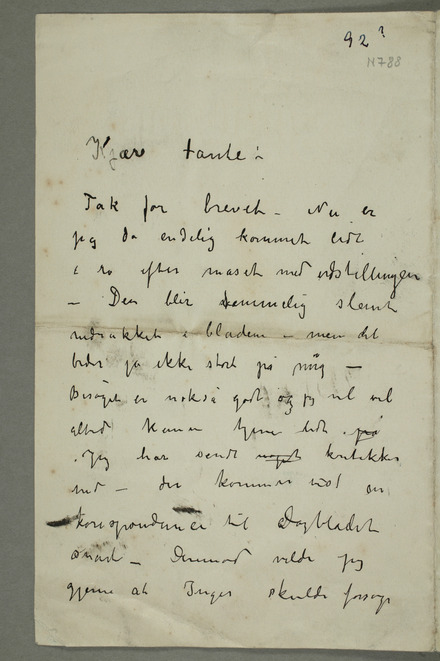 92?
N788
Kjære tante!
Tak for brevet – Nu er
jeg da endelig kommet lidt
i ro efter maset med udstillingen
– Den blir temmelig slemt
medtakket i bladene – men det
bider jo ikke stort på mig –
Besøget er nokså godt og jeg vil vel
altid kunne tjene lidt på
. Jeg har sendt noget kritikker
ned – der kommer vist en
korrespondance til Dagbladet
snart – Derimod vilde jeg
gjerne at Inger skulde forsøge